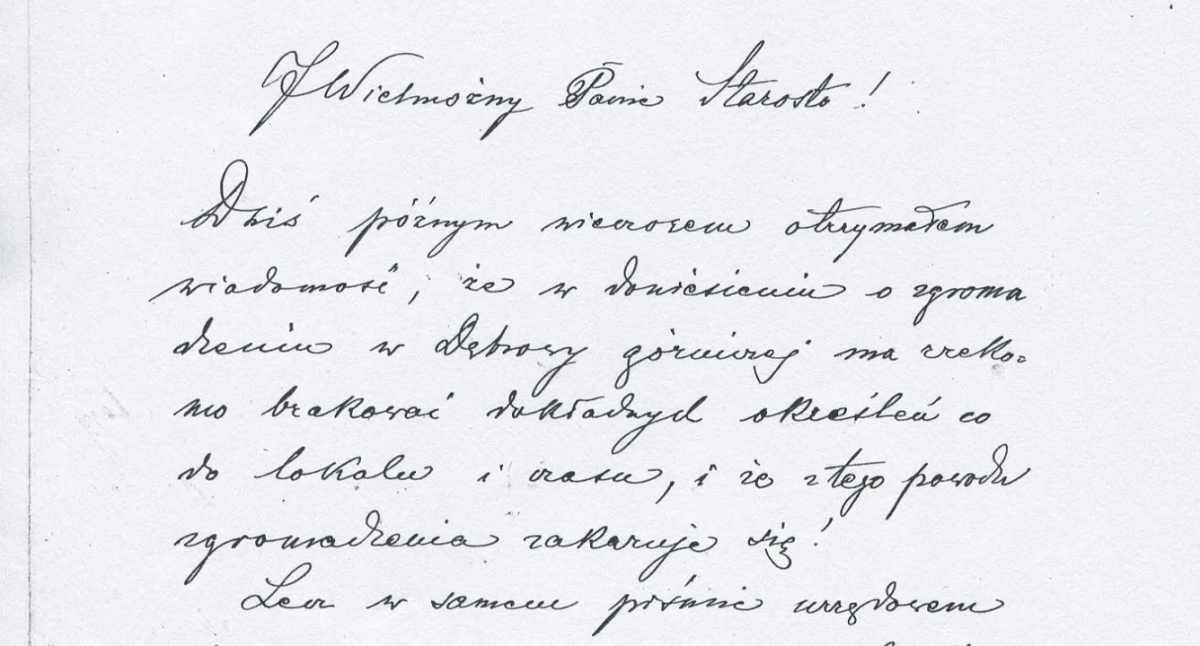 JWielmożny Panie Starosto!
Dziś późnym wieczorem otrzymałem
wiadomość, że w doniesieniu o zgroma
dzeniu w Dąbrowy górniczej ma rzeko=
mo brakować dokładnych określeń co
do lokalu i czasu, i że z tego powodu
zgromadzenia zakazuje się!
Lecz w samem piśmie urzędowem